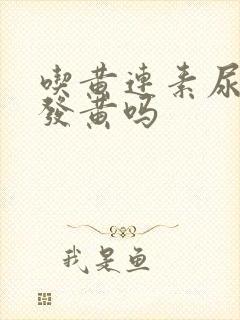 喫黄連素尿
發黄吗
我是鱼